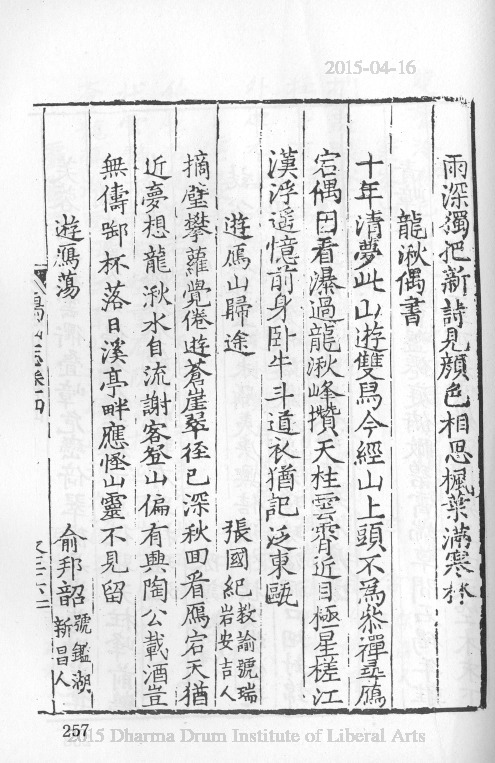 2015-04-16
雨深獨把新詩見顏色相思楓葉滿寒林
龍湫偶書
十年清夢此山遊雙舄今經山上頭不為參禪尋鴈
宕偶因看瀑過龍湫峰攢天柱雲霄近目極星槎江
漢浮遥憶前身卧牛斗道衣猶記泛東甌
遊鴈山歸途
張國紀教諭號瑞岩安吉人
摘壁攀蘿覺倦遊蒼崖翠徑已深秋囬看鴈宕天猶
近夢想龍湫水自流謝客登山偏有興陶公載酒豈
無儔啣杯落日溪亭畔應怪山靈不見留
遊鴈蕩
俞邦韶號鑑湖新昌人
山志卷四
257
2015 Dharma Drum Institute of Liberal Arts